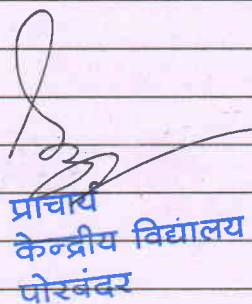 प्राचार्य
केन्द्रीय विद्यालय
पोरबंदर